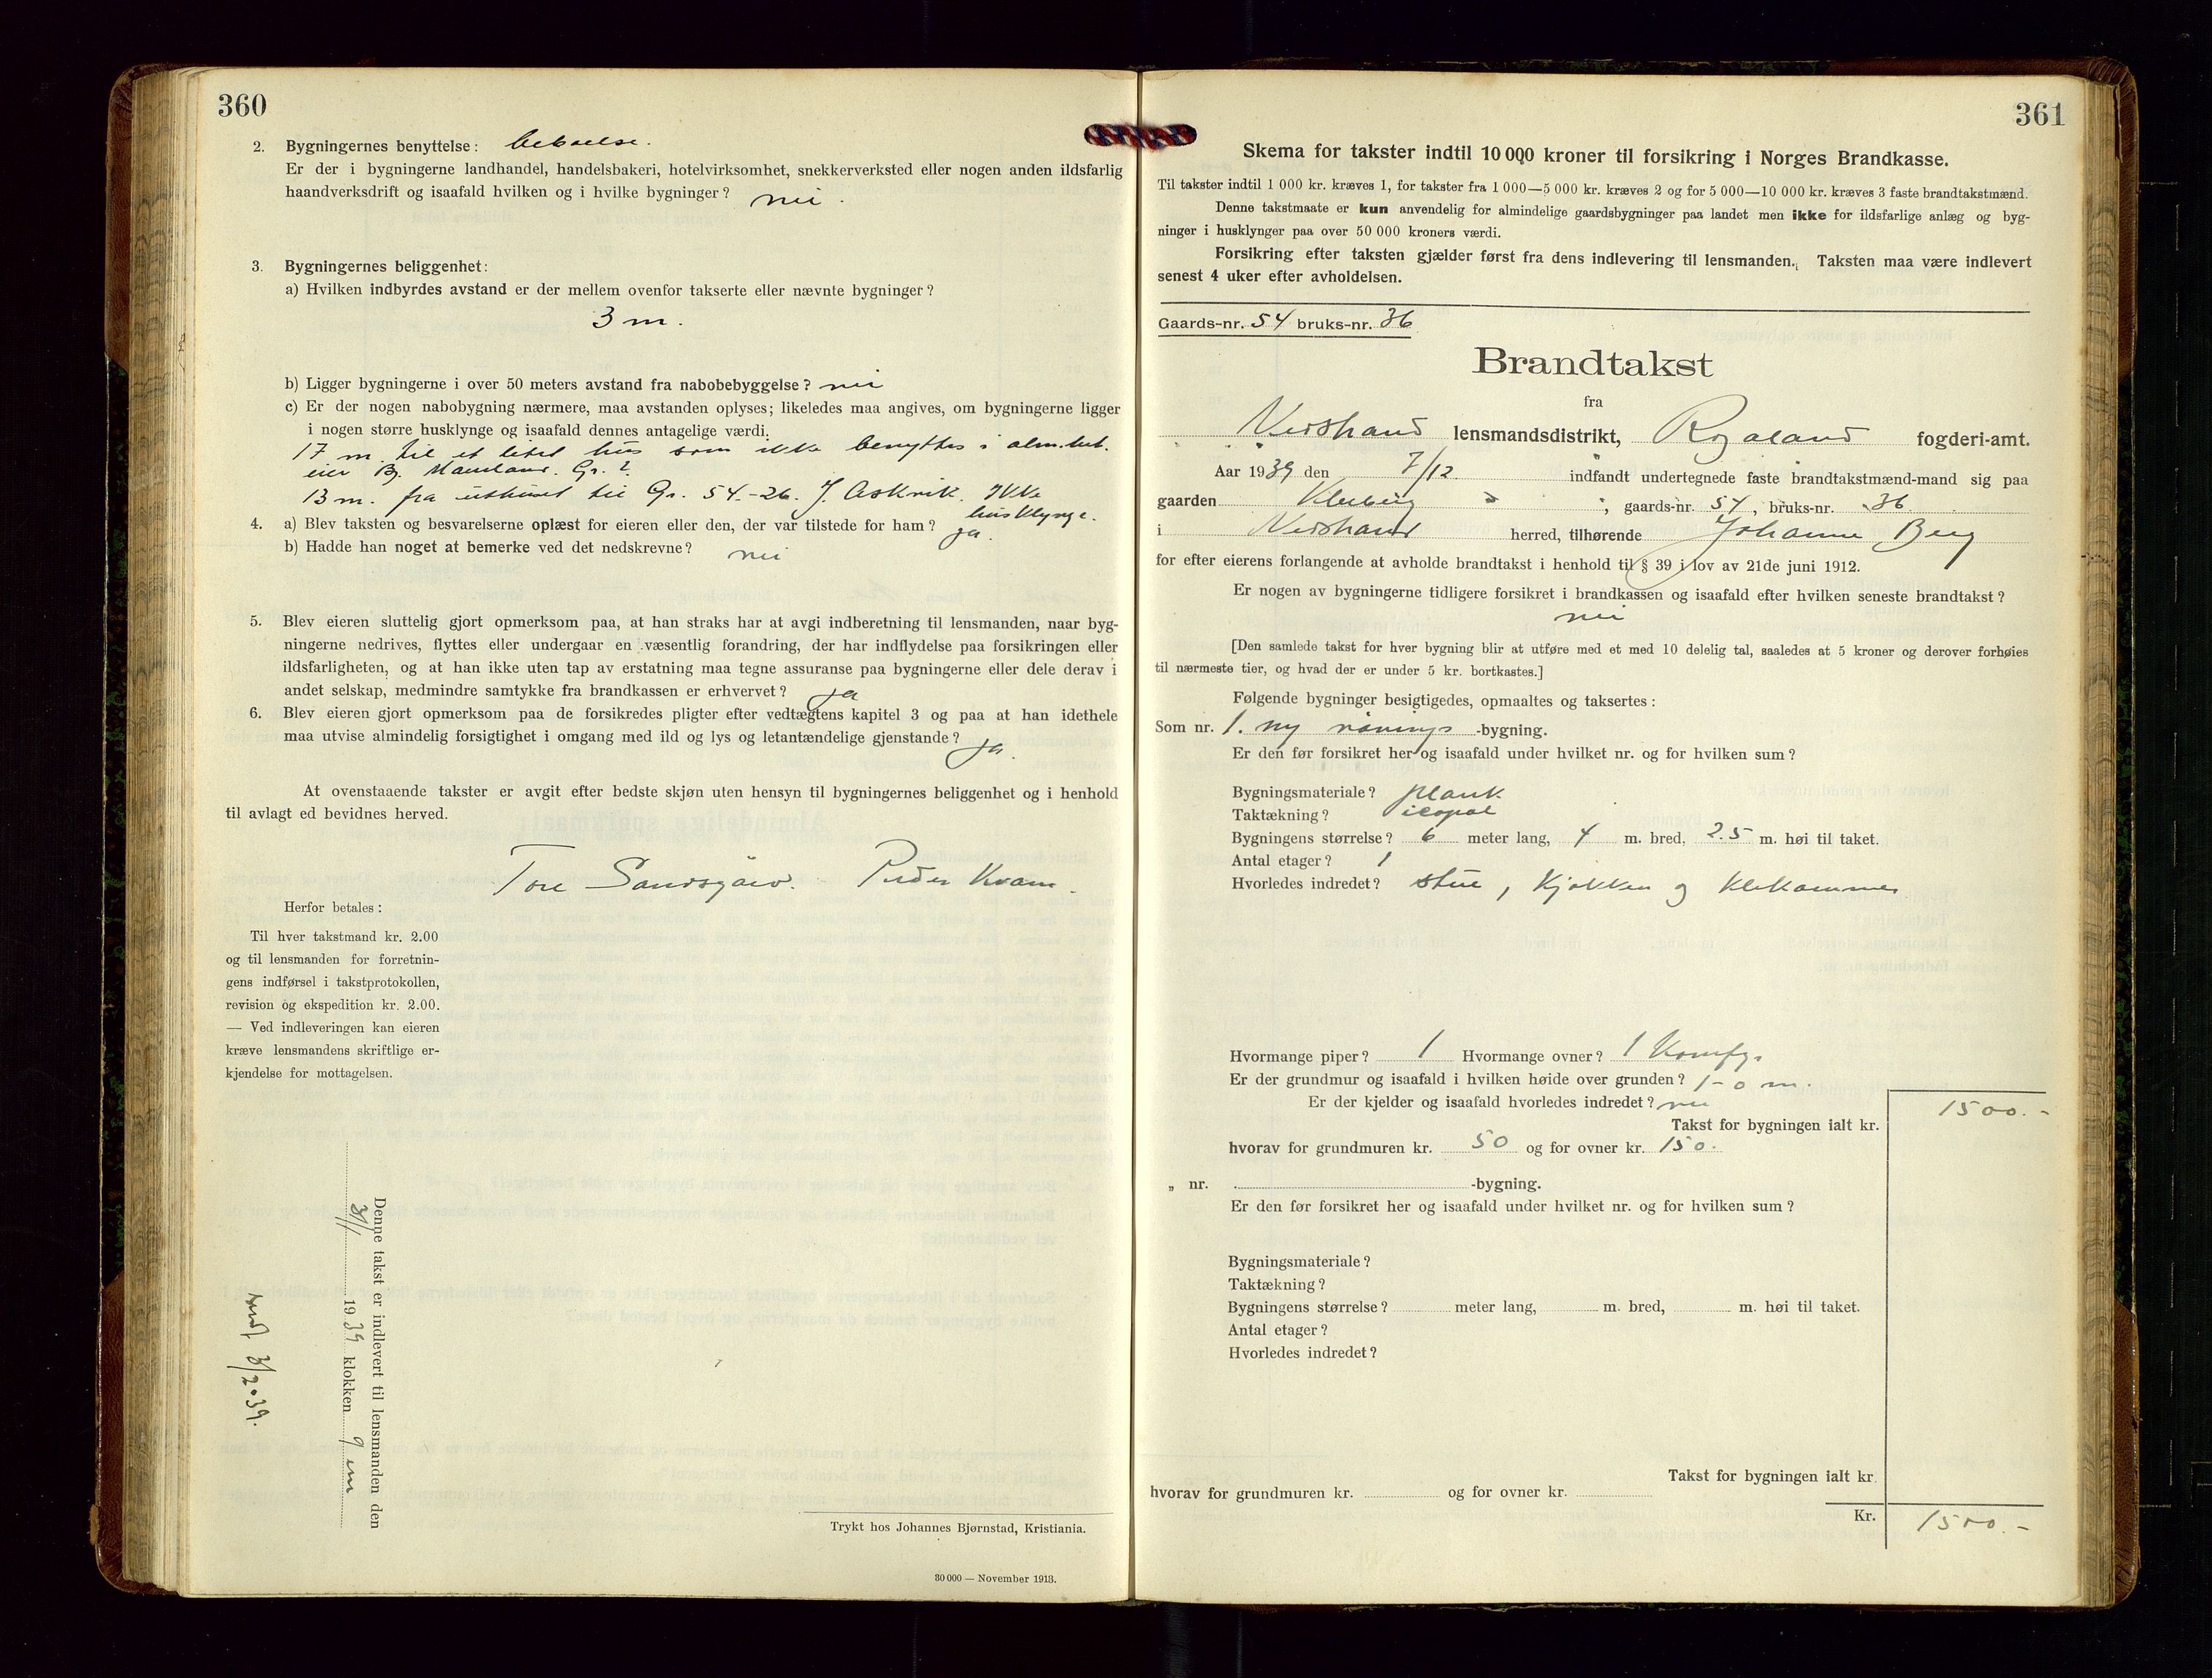 360
2. Bygningernes benyttelse: beboelse.
Er der i bygningerne landhandel, handelsbakeri, hotelvirksomhet, snekkerverksted eller nogen anden ildsfarlig
haandverksdrift og isaafald hvilken og i hvilke bygninger? nei.
3. Bygningernes beliggenhet:
a) Hvilken indbyrdes avstand er der mellem ovenfor takserte eller nævnte bygninger?
3 m.
b) Ligger bygningerne i over 50 meters avstand fra nabobebyggelse? nei
c) Er der nogen nabobygning nærmere, maa avstanden oplyses; likeledes maa angives, om bygningerne ligger
i nogen større husklynge og isaafald dennes antagelige værdi.
17 m. til et litet hus som ikke benyttes i alm.het.
eier Bj. Gr. ?
13 m. fra uthuset til Gr. 54.-26. J. Askvik. Ikke
husklynge.
4. a) Blev taksten og besvarelserne oplæst for eieren eller den, der var tilstede for ham? ja.
b) Hadde han noget at bemerke ved det nedskrevne? nei
5. Blev eieren sluttelig gjort opmerksom paa, at han straks har at avgi indberetning til lensmanden, naar byg-
ningerne nedrives, flyttes eller undergaar en væsentlig forandring, der har indflydelse paa forsikringen eller
ildsfarligheten, og at han ikke uten tap av erstatning maa tegne assuranse paa bygningerne eller dele derav i
andet selskap, medmindre samtykke fra brandkassen er erhvervet? ja
6. Blev eieren gjort opmerksom paa de forsikredes pligter efter vedtægtens kapitel 3 og paa at han idethele
maa utvise almindelig forsigtighet i omgang med ild og lys og letantændelige gjenstande? ja.
At ovenstaaende takster er avgit efter bedste skjøn uten hensyn til bygningernes beliggenhet og i henhold
til avlagt ed bevidnes herved.
Tore Peder Kvam.
Herfor betales:
Til hver takstmand kr. 2.00
og til lensmanden for forretnin-
gens indførsel i takstprotokollen,
revision og ekspedition kr. 2.00.
— Ved indleveringen kan eieren
kræve lensmandens skriftlige er-
kjendelse for mottagelsen.
Denne takst er indlevert til lensmanden den
31/1 1939 klokken 9 em
send 3/2.39.
Trykt hos Johannes Bjørnstad, Kristiania.
30 000 — November 1913.
361
Skema for takster indtil 10 000 kroner til forsikring i Norges Brandkasse.
Til takster indtil 1 000 kr. kræves 1, for takster fra 1 000—5 000 kr. kræves 2 og for 5 000—10 000 kr. kræves 3 faste brandtakstmænd.
Denne takstmaate er kun anvendelig for almindelige gaardsbygninger paa landet men ikke for ildsfarlige anlæg og byg-
ninger i husklynger paa over 50 000 kroners værdi.
Forsikring efter taksten gjælder først fra dens indlevering til lensmanden. Taksten maa være indlevert
senest 4 uker efter avholdelsen.
Gaards-nr. 54 bruks-nr. 36
Brandtakst
fra
Nedstrand lensmandsdistrikt, Rogaland fogderi-amt.
Aar 1939 den 7/12 indfandt undertegnede faste brandtakstmænd-mand sig paa
gaarden Kleberg, gaards-nr. 54, bruks-nr. 36
i Nedstrand herred, tilhørende Johanne Berg
for efter eierens forlangende at avholde brandtakst i henhold til § 39 i lov av 21de juni 1912.
Er nogen av bygningerne tidligere forsikret i brandkassen og isaafald efter hvilken seneste brandtakst?
nei
[Den samlede takst for hver bygning blir at utføre med et med 10 delelig tal, saaledes at 5 kroner og derover forhøies
til nærmeste tier, og hvad der er under 5 kr. bortkastes.]
Følgende bygninger besigtigedes, opmaaltes og taksertes:
Som nr. 1. ny vånings-bygning.
Er den før forsikret her og isaafald under hvilket nr. og for hvilken sum?
Bygningsmateriale? plank
Taktækning? icopal
Bygningens størrelse? 6 meter lang, 4 m. bred, 2.5 m. høi til taket.
Antal etager? 1
Hvorledes indredet? stue, kjøkken og klekammer
Hvormange piper? 1 Hvormange ovner? 1 komfyr
Er der grundmur og isaafald i hvilken høide over grunden? 1-0 m.
Er der kjelder og isaafald hvorledes indredet? nei
Takst for bygningen ialt kr. 1500.-
hvorav for grundmuren kr. 50 og for ovner kr. 150.
„ nr. -bygning.
Er den før forsikret her og isaafald under hvilket nr. og for hvilken sum?
Bygningsmateriale?
Taktækning?
Bygningens størrelse? meter lang, m. bred, m. høi til taket.
Antal etager?
Hvorledes indredet?
Takst for bygningen ialt kr.
hvorav for grundmuren kr. og for ovner kr.
Kr. 1500.-